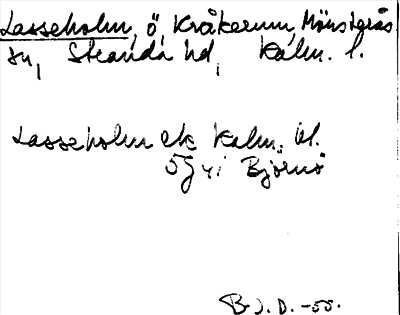 Lasseholm, ö, Kråkerum, Mönsterås
sn, Stranda hd, Kalm. l.
Lasseholm ek Kalm. bl.
5G4i Björnö
B.J.D. -55.